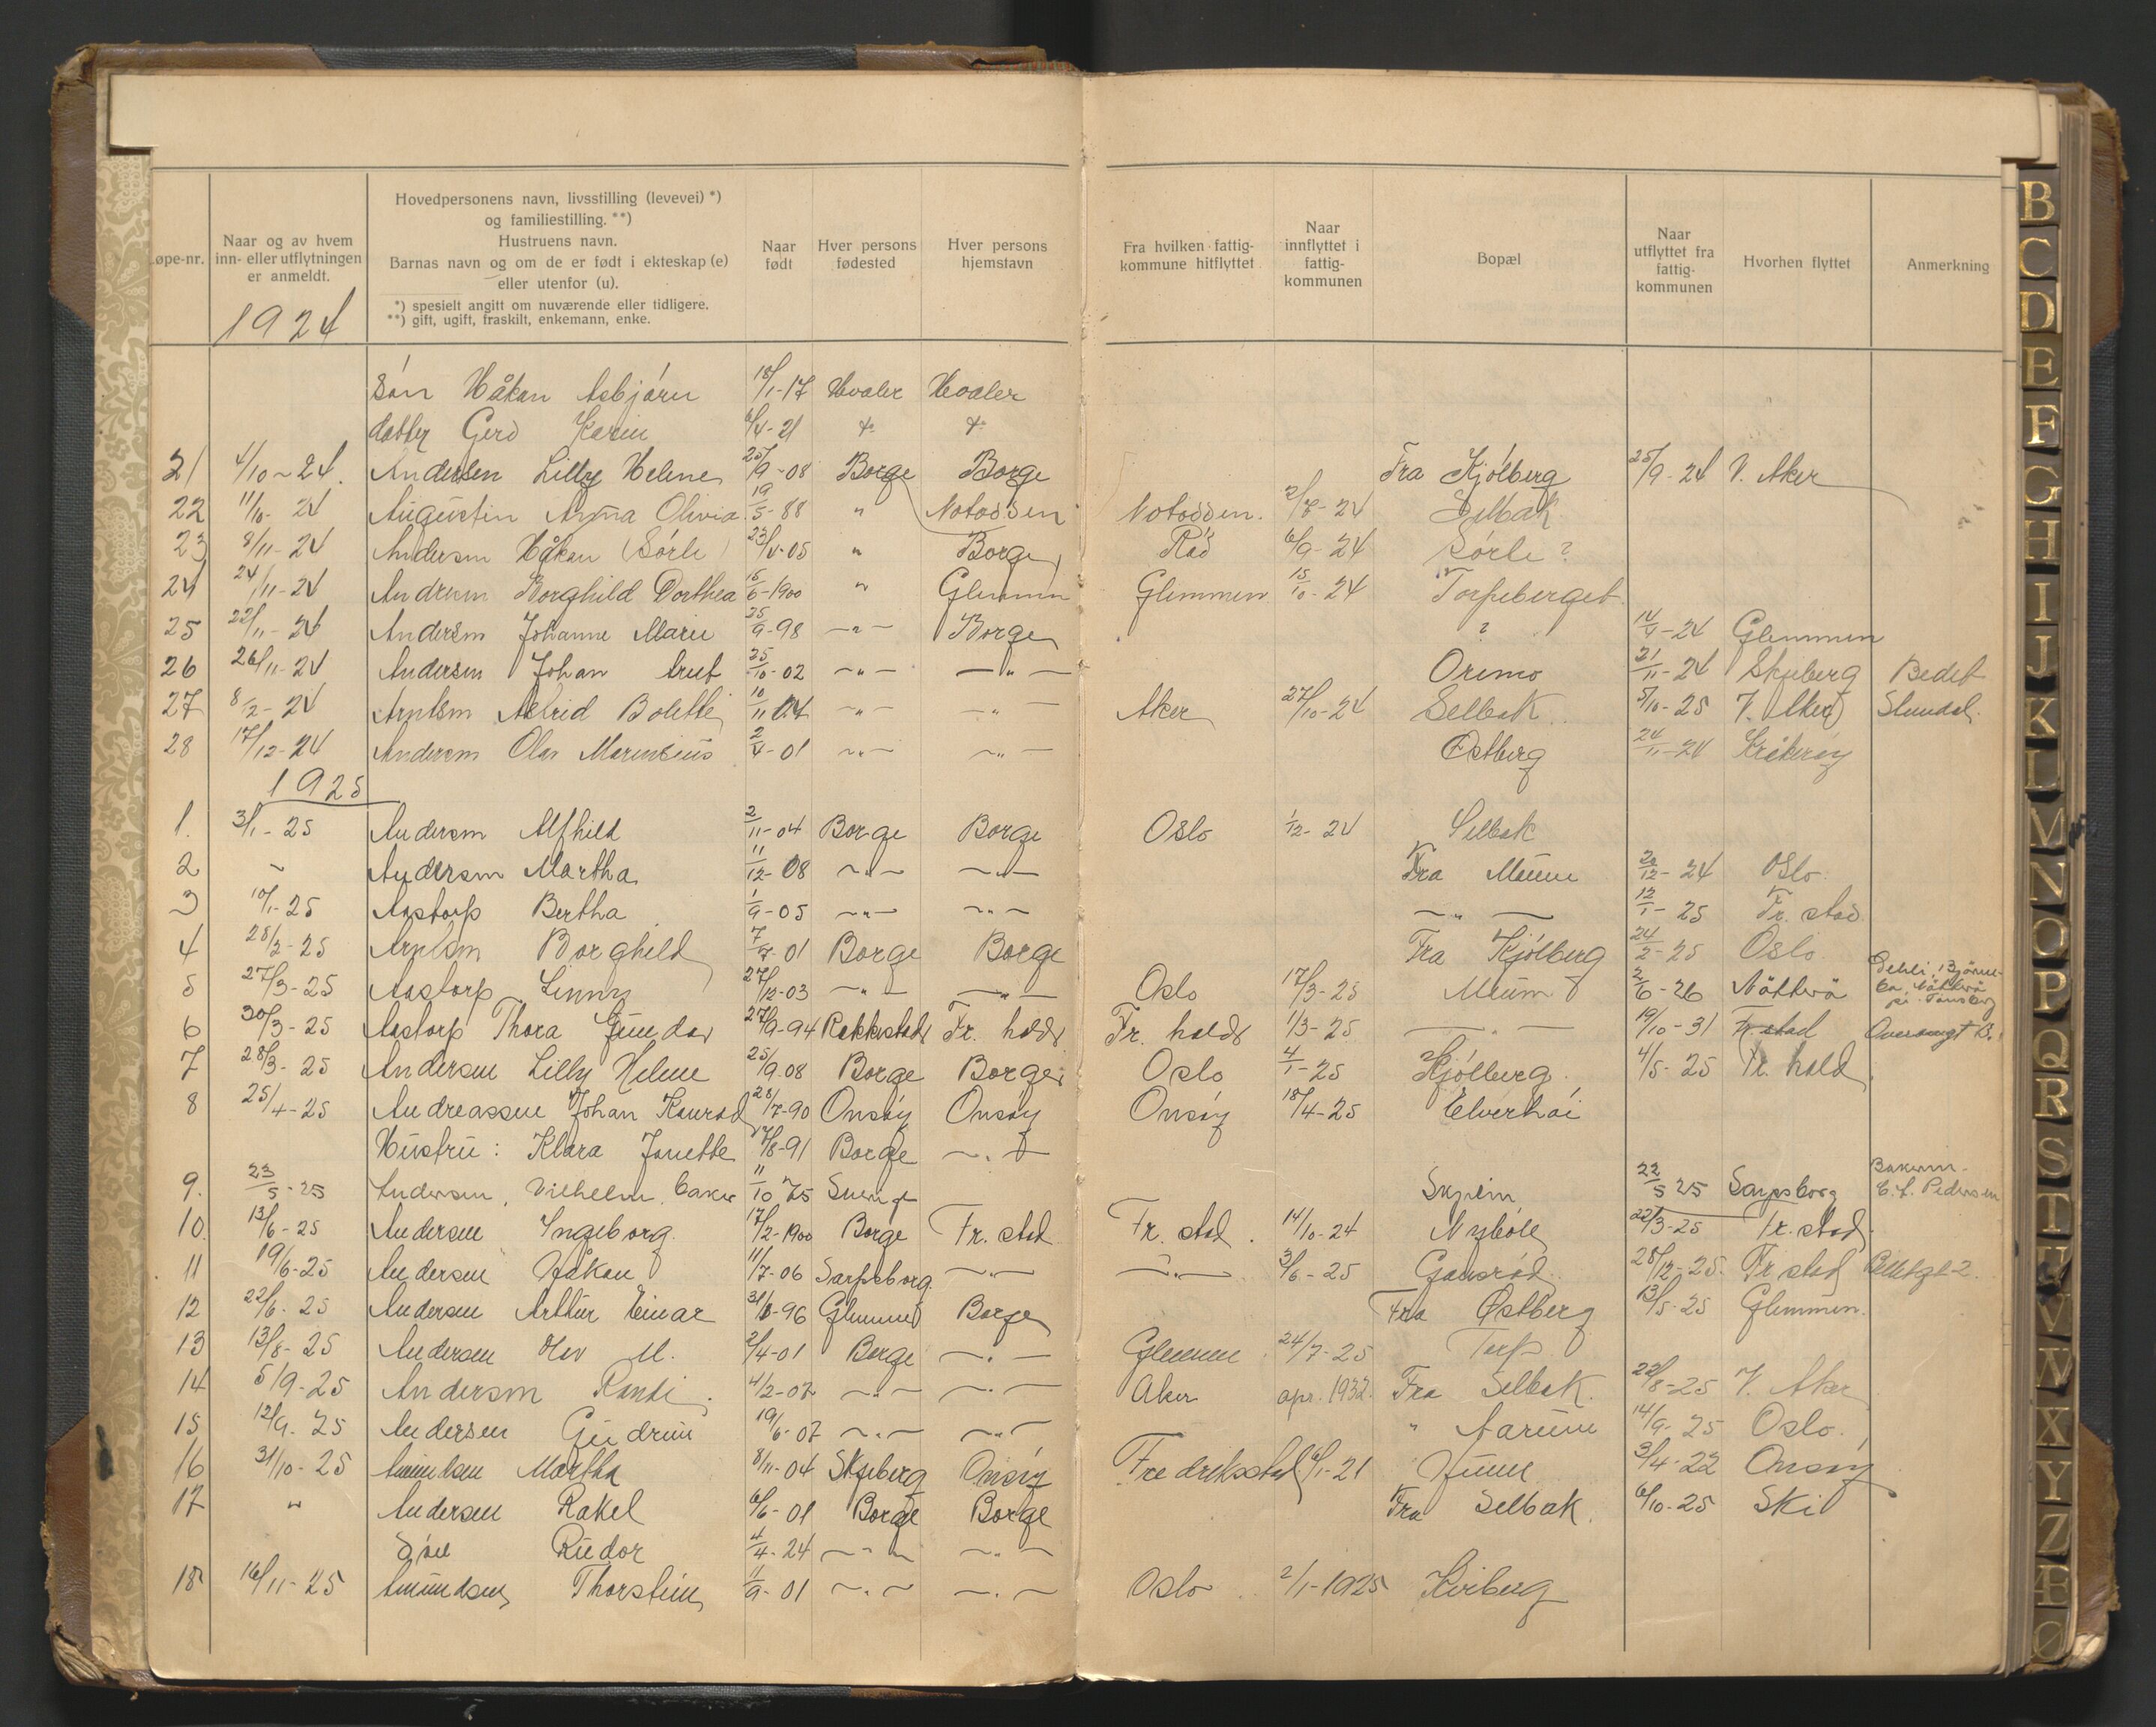 Løpe-nr. | Naar og av hvem inn- eller utflytningen er anmeldt. | Hovedpersonens navn, livsstilling (levevei) *) og familiestilling. **) Hustruens navn. Barnas navn og om de er født i ekteskap (e) eller utenfor (u). *) spesielt angitt om nuværende eller tidligere. **) gift, ugift, fraskilt, enkemann, enke. | Naar født | Hver persons fødested | Hver persons hjemstavn | Fra hvilken fattigkommune hitflyttet | Naar innflyttet i fattigkommunen | Bopæl | Naar utflyttet fra fattigkommunen | Hvorhen flyttet | Anmerkning
1924
Søn Håkan Asbjørn 18/1-17 Hvaler Hvaler
datter Gerd Karin 6/4-21
21 4/10-24. Andersen Lilly Helene 25/9-08 Borge Borge Fra Kjølberg 25/9-24 V. Aker
22 11/10-24 Augustin Anna Olivia 19/5-88 " Notodden Notodden. 2/8-24 Selbak
23 8/11-24 Andersen Håkan (Sørli) 23/4-05 " Borge Råd 6/9-24 Sørli ?
24 24/11-24 Andersen Borghild Dorthea 15/6-1900 " Glemmen Glemmen 15/10-24 Torpeberget
25 22/11-24 Andersen Johanne Marie 25/9-98 -"- Borge ? 14/9-24 Glemmen
26 26/11-24 Andersen Johan 25/10-02 -"- -"- Oremo 21/11-24 Skjeberg
27 8/12-24 Arntsen Astrid Bolette 10/11 04 -"- -"- Aker 27/10-24 Selbak 5/10-25 V. Aker
28 17/12-24 Andersen Olav Marensius 2/4-01 -"- -"- Østberg 24/11-24 Kråkerøy
1925
1. 3/1-25 Andersen Alfhild 2/11-04 Borge Borge Oslo 1/12-24 Selbak
2 " Andersen Martha 11/12-08 -"- -"- Fra Moum 20/12-24 Oslo
3 10/1-25 Aastorp Bertha 1/9-05 -"- -"- -"- 12/1-25 Fr. stad
4 28/2-25 Arntsen Borghild 7/7-01 Borge Borge Fra Kjølberg 24/2-25 Oslo
5 27/3-25 Aastorp Linny 27/12-03 -"- -"- Oslo 17/3-25 Moum 2/6-26 Nøtterø
6 30/3-25 Aastorp Thora Gunda 27/9-94 Rakkestad Fr. hald Fr. hald 1/3-25 -"- 19/10-31 Fr. stad
7 28/3-25 Andersen Lilly Helene 25/9-08 Borge Borge Oslo 4/1-25 Kjølberg. 4/5-25 Fr. hald
8 25/4-25 Andreassen Johan Konrad 28/7-90 Onsøy Onsøy Onsøy 18/4-25 Elverhøi
Hustru: Klara Janette 7/8-91 Borge -"-
9. 23/5-25 Andersen, Vilhelm, baker 11/10 75 Sverige Skjeim 22/5 25 Sarpsborg E. L. Pedersen
10. 13/6-25 Andersen Ingeborg. 17/2-1900 Borge Fr. stad Fr. stad. 14/10-24 Nybøle 22/3-25 Fr. stad
11 19/6-25 Andersen Håkan 11/7-06 Sarpsborg -"- -"- 3/6-25 Gansrød 28/12-25. Fr stad
12 22/6-25 Andersen Arthur Einar 31/8-96 Glemmen Borge Fra Østberg 13/5-25 Glemmen.
13 13/8-25 Andersen Olav M. 2/4-01 Borge -"- Glemmen 24/7-25 Torp
14 5/9-25 Andersen Randi. 4/2-07 -"- -"- Aker apr. 1932. Fra Selbak. 22/8-25 V. Aker
15 12/9-25 Andersen Gudrun 19/6-07 -"- -"- " Aarum 14/9-25 Oslo.
16 31/10-25 Amundsen Martha 8/11-04 Skjeberg Onsøy Fredrikstad 6/1-21 Hunn 3/4-22 Onsøy
17 " Andersen Rakel 6/6-01 Borge Borge Fra Selbak. 6/10-25 Ski
Søn Reidor 4/4-24 -"- -"-
18 16/11-25 Amundsen Thorstein 11/9-01 -"- -"- Oslo 2/1-1925 Kviberg
B
C
D
E
F
G
H
I
J
K
L
M
N
O
P
Q
R
S
T
U
V
W
X
Y
Z
Æ
Ø